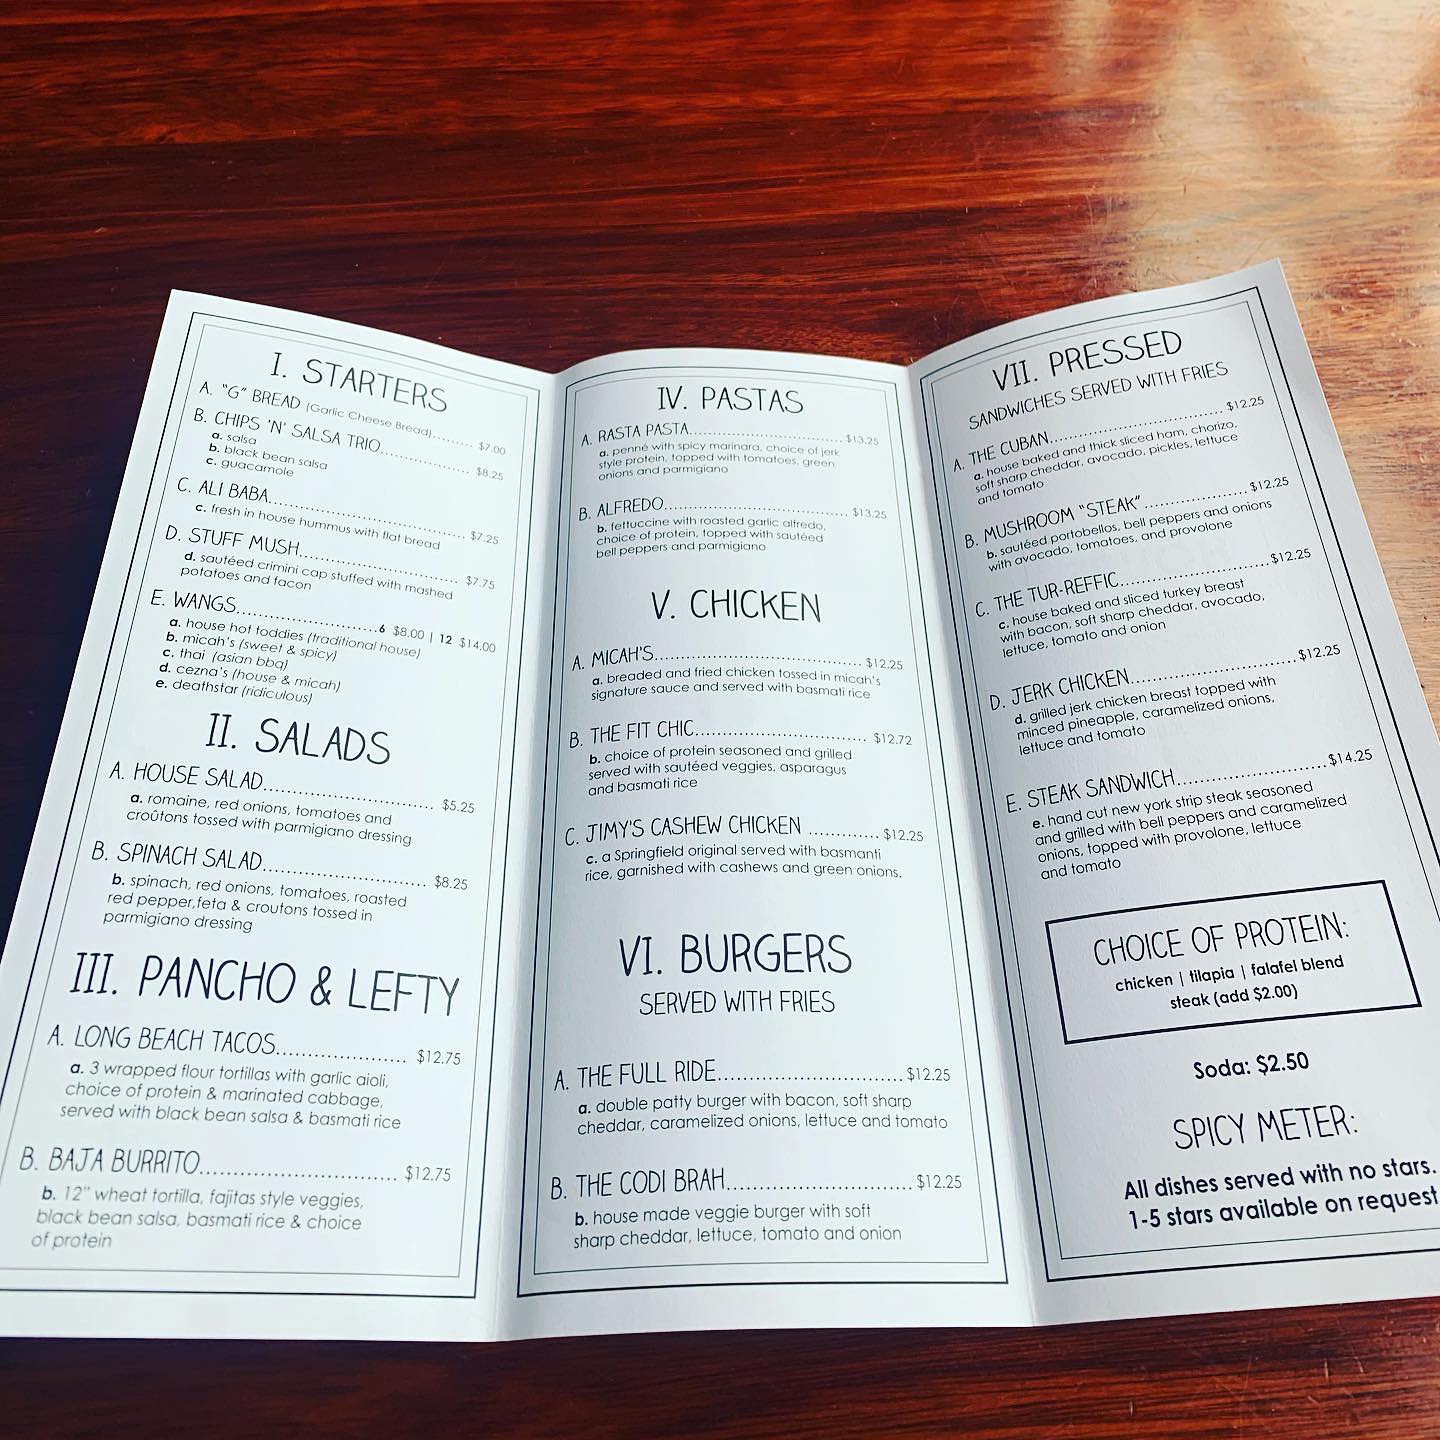 I. STARTERS
A. "G" BREAD (Garlic Cheese Bread)......... $7.00
B. CHIPS 'N' SALSA TRIO.................. $8.25
a. salsa
b. black bean salsa
c. guacamole
C. ALI BABA........................................ $7.25
c. fresh in house hummus with flat bread
D. STUFF MUSH................................ $7.75
d. sautéed crimini cap stuffed with mashed
potatoes and facon
E. WANGS............................6 $8.00 | 12 $14.00
a. house hot toddies (traditional house)
b. micah's (sweet & spicy)
c. thai (asian bbq)
d. cezna's (house & micah)
e. deathstar (ridiculous)
II. SALADS
A. HOUSE SALAD.................................. $5.25
a. romaine, red onions, tomatoes and
croûtons tossed with parmigiano dressing
B. SPINACH SALAD................................ $8.25
b. spinach, red onions, tomatoes, roasted
red pepper,feta & croutons tossed in
parmigiano dressing
III. PANCHO & LEFTY
A. LONG BEACH TACOS..................... $12.75
a. 3 wrapped flour tortillas with garlic aioli,
choice of protein & marinated cabbage,
served with black bean salsa & basmati rice
B. BAJA BURRITO................................ $12.75
b. 12" wheat tortilla, fajitas style veggies,
black bean salsa, basmati rice & choice
of protein
IV. PASTAS
A. RASTA PASTA................................$13.25
a. penné with spicy marinara, choice of jerk
style protein, topped with tomatoes, green
onions and parmigiano
B. ALFREDO........................................$13.25
b. fettuccine with roasted garlic alfredo,
choice of protein, topped with sautéed
bell peppers and parmigiano
V. CHICKEN
A. MICAH'S........................................ $12.25
a. breaded and fried chicken tossed in micah's
signature sauce and served with basmati rice
B. THE FIT CHIC................................. $12.72
b. choice of protein seasoned and grilled
served with sautéed veggies, asparagus
and basmati rice
C. JIMY'S CASHEW CHICKEN ............ $12.25
c. a Springfield original served with basmanti
rice, garnished with cashews and green onions.
VI. BURGERS
SERVED WITH FRIES
A. THE FULL RIDE................................ $12.25
a. double patty burger with bacon, soft sharp
cheddar, caramelized onions, lettuce and tomato
B. THE CODI BRAH................................ $12.25
b. house made veggie burger with soft
sharp cheddar, lettuce, tomato and onion
VII. PRESSED
SANDWICHES SERVED WITH FRIES
A. THE CUBAN................................ $12.25
a. house baked and thick sliced ham, chorizo,
soft sharp cheddar, avocado, pickles, lettuce
and tomato
B. MUSHROOM "STEAK"..................$12.25
b. sautéed portobellos, bell peppers and onions
with avocado, tomatoes, and provolone
C. THE TUR-REFFIC..........................$12.25
c. house baked and sliced turkey breast
with bacon, soft sharp cheddar, avocado,
lettuce, tomato and onion
D. JERK CHICKEN............................$12.25
d. grilled jerk chicken breast topped with
minced pineapple, caramelized onions,
lettuce and tomato
E. STEAK SANDWICH........................$14.25
e. hand cut new york strip steak seasoned
and grilled with bell peppers and caramelized
onions, topped with provolone, lettuce
and tomato
CHOICE OF PROTEIN:
chicken | tilapia | falafel blend
steak (add $2.00)
Soda: $2.50
SPICY METER:
All dishes served with no stars.
1-5 stars available on request